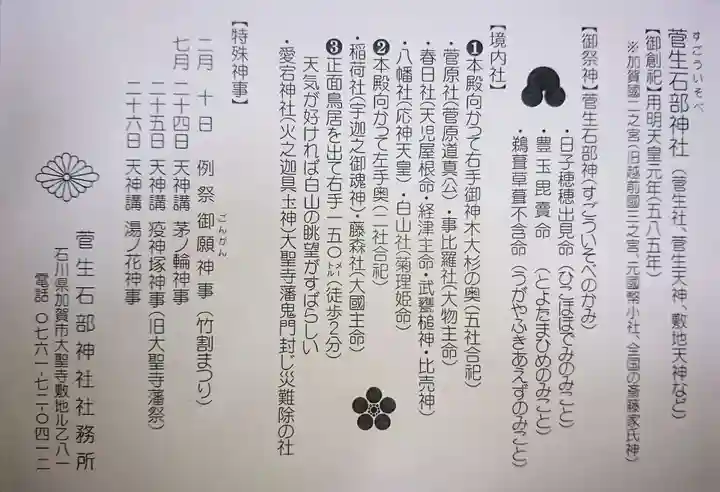 すごういそべ
菅生石部神社（菅生社、菅生天神、敷地天神など）
【御創祀】用明天皇元年（五八五年）
※加賀國二之宮（旧越前國三之宮、元國幣小社、全国の斎藤家氏神）
【御祭神】菅生石部神（すごういそべのかみ）
・日子穂穂出見命（ひこほほでみのみこと）
・豊玉毘賣命（とよたまひめのみこと）
・鵜葺草葺不合命（うがやふきあえずのみこと）
【境内社】
❶本殿向かって右手御神木大杉の奥（五社合祀）
・菅原社（菅原道真公）・事比羅社（大物主命）
・春日社（天児屋根命・経津主命・武甕槌神・比売神）
・八幡社（応神天皇）・白山社（菊理姫命）
❷本殿向かって左手奥（二社合祀）
・稲荷社（宇迦之御魂神）・藤森社（大國主命）
❸正面鳥居を出て右手一五〇㍍（徒歩２分）
天気が好ければ白山の眺望がすばらしい
・愛宕神社（火之迦具土神）大聖寺藩鬼門封じ災難除の社
【特殊神事】
二月 十日 例祭御願神事（竹割まつり）
ごんがん
七月 二十四日 天神講 茅ノ輪神事
二十五日 天神講 疫神塚神事（旧大聖寺藩祭）
二十六日 天神講 湯ノ花神事
菅生石部神社社務所
石川県加賀市大聖寺敷地ル乙八一
電話 〇七六一-七二-〇四一二